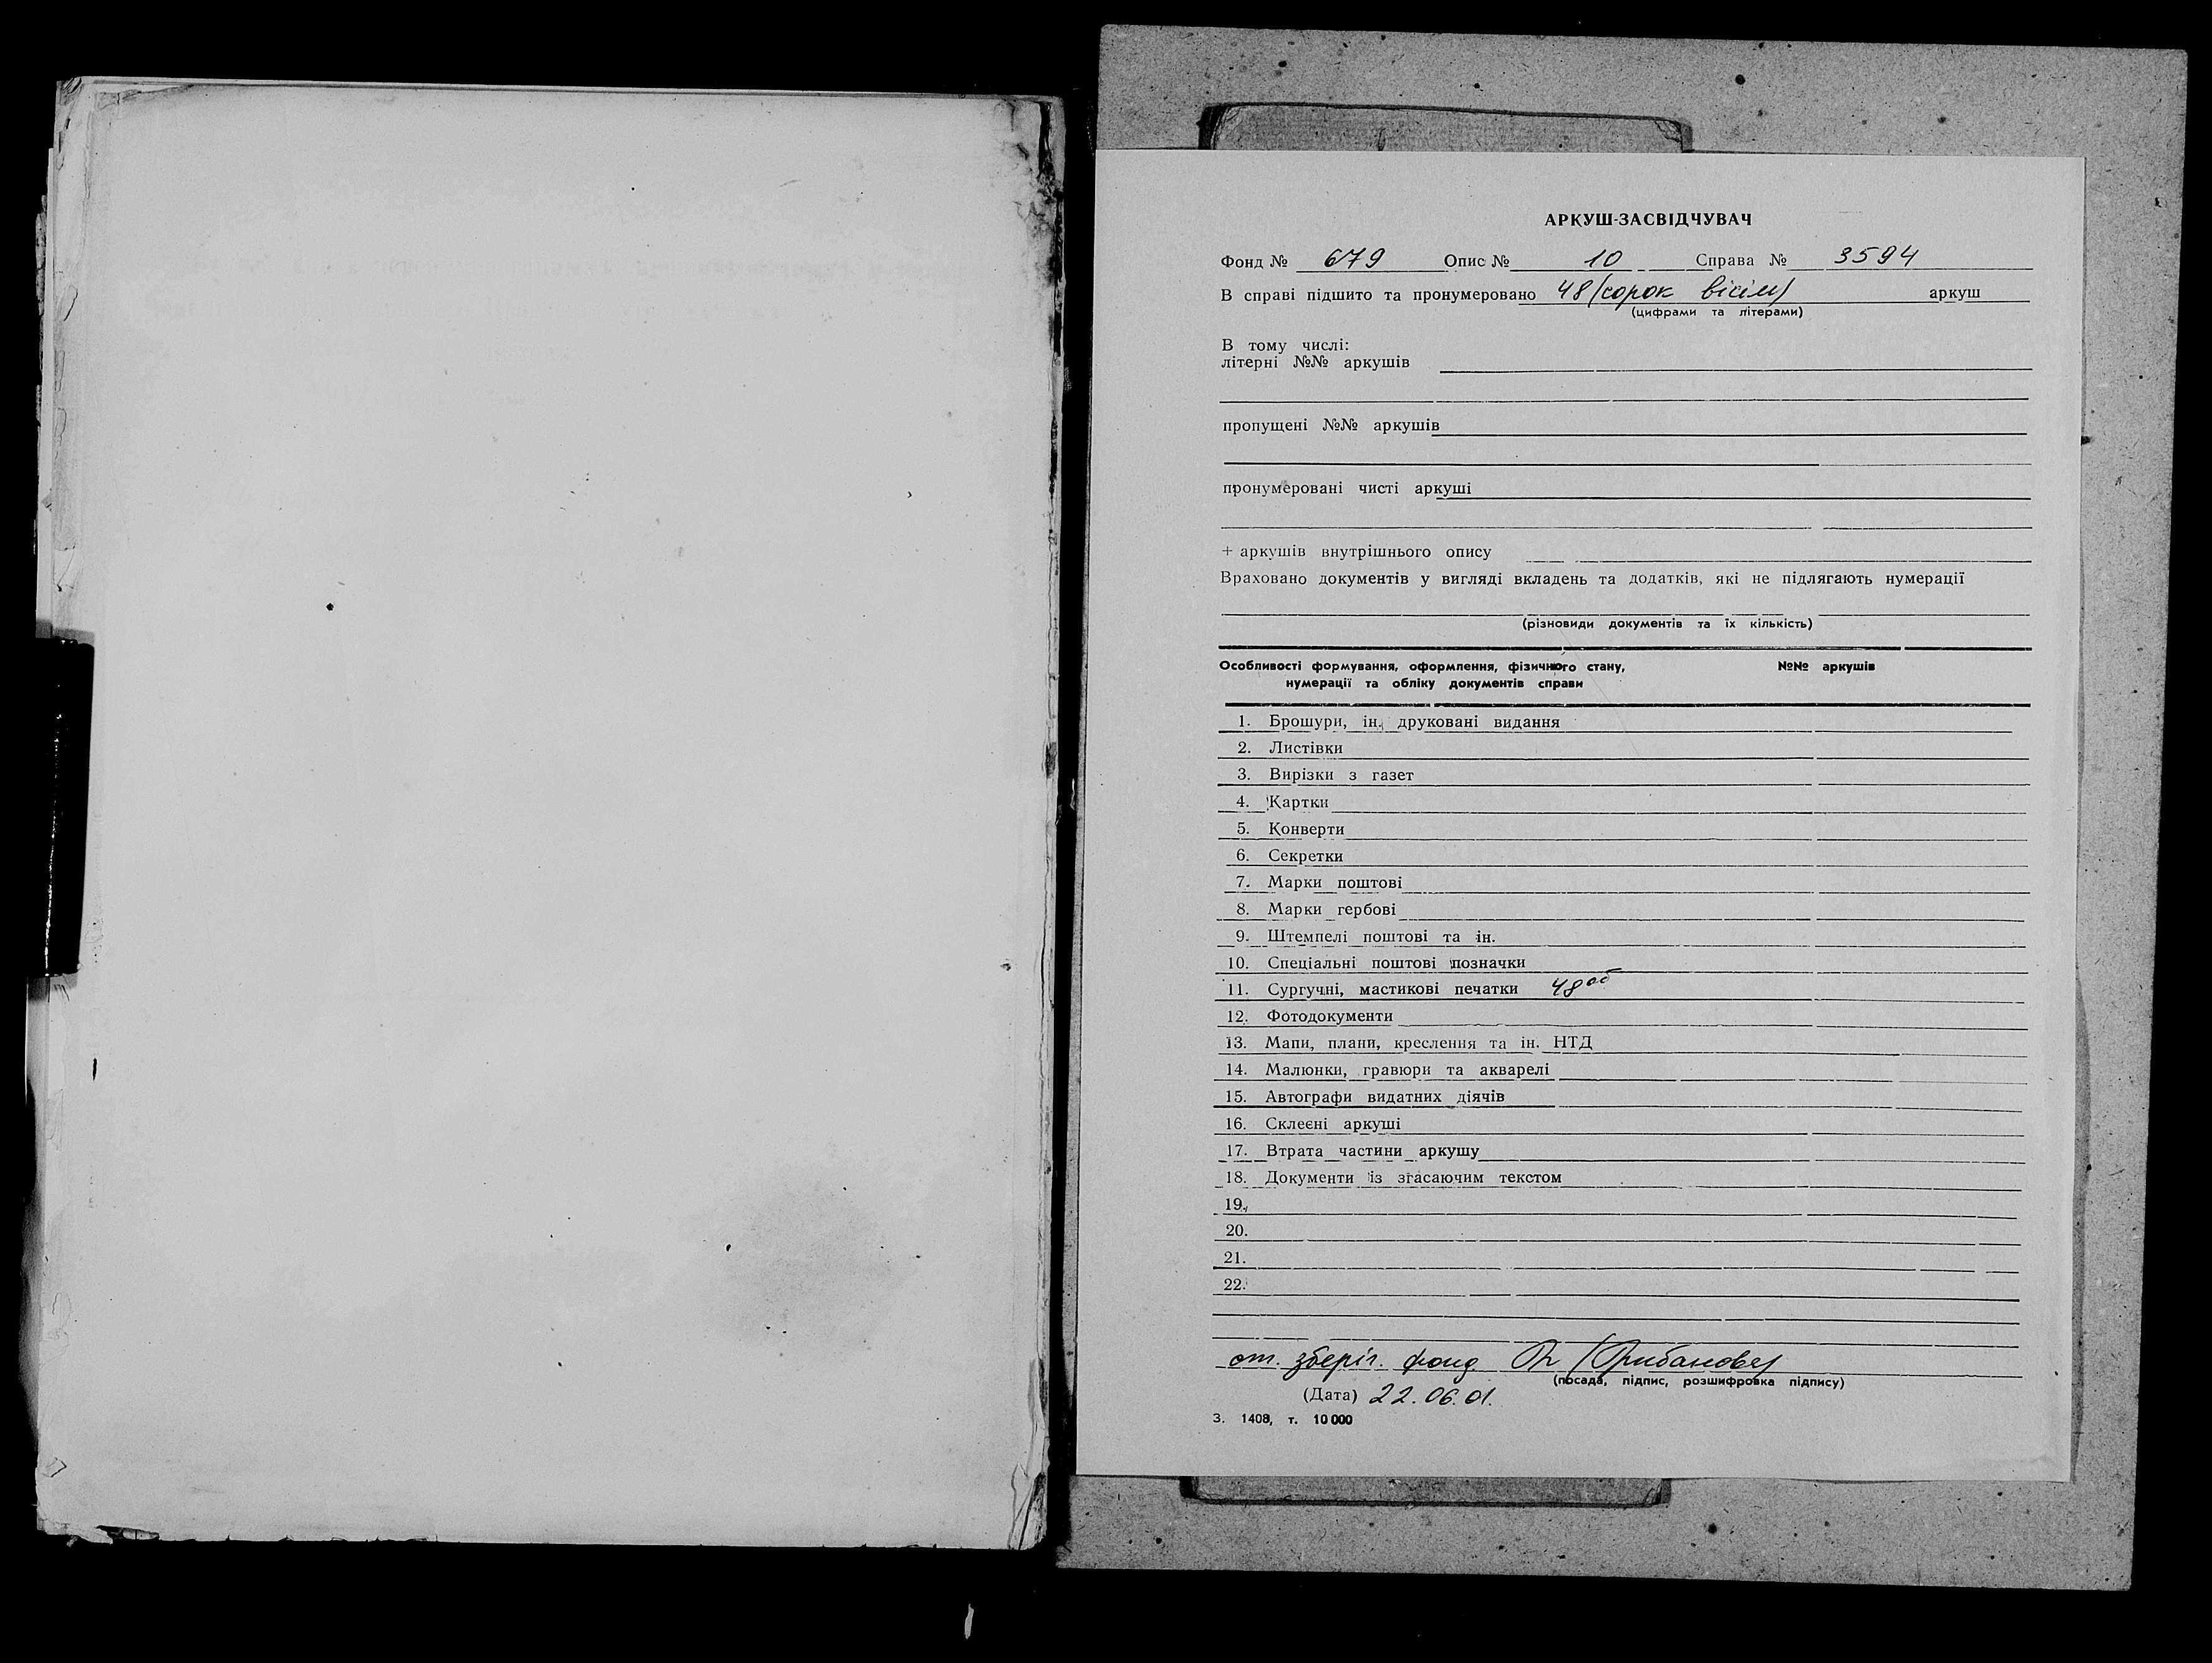 АРКУШ-ЗАСВІДЧУВАЧ
Фонд № 679 Опис № 10 Справа № 3594
В справі підшито та пронумеровано 48 (сорок вісім) аркуш
(цифрами та літерами)
В тому числі:
літерні №№ аркушів
пропущені №№ аркушів
пронумеровані чисті аркуші
+ аркушів внутрішнього опису
Враховано документів у вигляді вкладень та додатків, які не підлягають нумерації
(різновиди документів та їх кількість)
Особливості формування, оформлення, фізичного стану, №№ аркушів
нумерації та обліку документів справи
1. Брошури, ін. друковані видання
2. Листівки
3. Вирізки з газет
4. Картки
5. Конверти
6. Секретки
7. Марки поштові
8. Марки гербові
9. Штемпелі поштові та ін.
10. Спеціальні поштові позначки
11. Сургучні, мастикові печатки 48 об
12. Фотодокументи
13. Мапи, плани, креслення та ін. НТД
14. Малюнки, гравюри та акварелі
15. Автографи видатних діячів
16. Склеєні аркуші
17. Втрата частини аркушу
18. Документи із згасаючим текстом
19.
20.
21.
22.
ст. зберіг. фонд
(посада, підпис, розшифровка підпису)
(Дата) 22.06.01.
З. 1408, т. 10 000